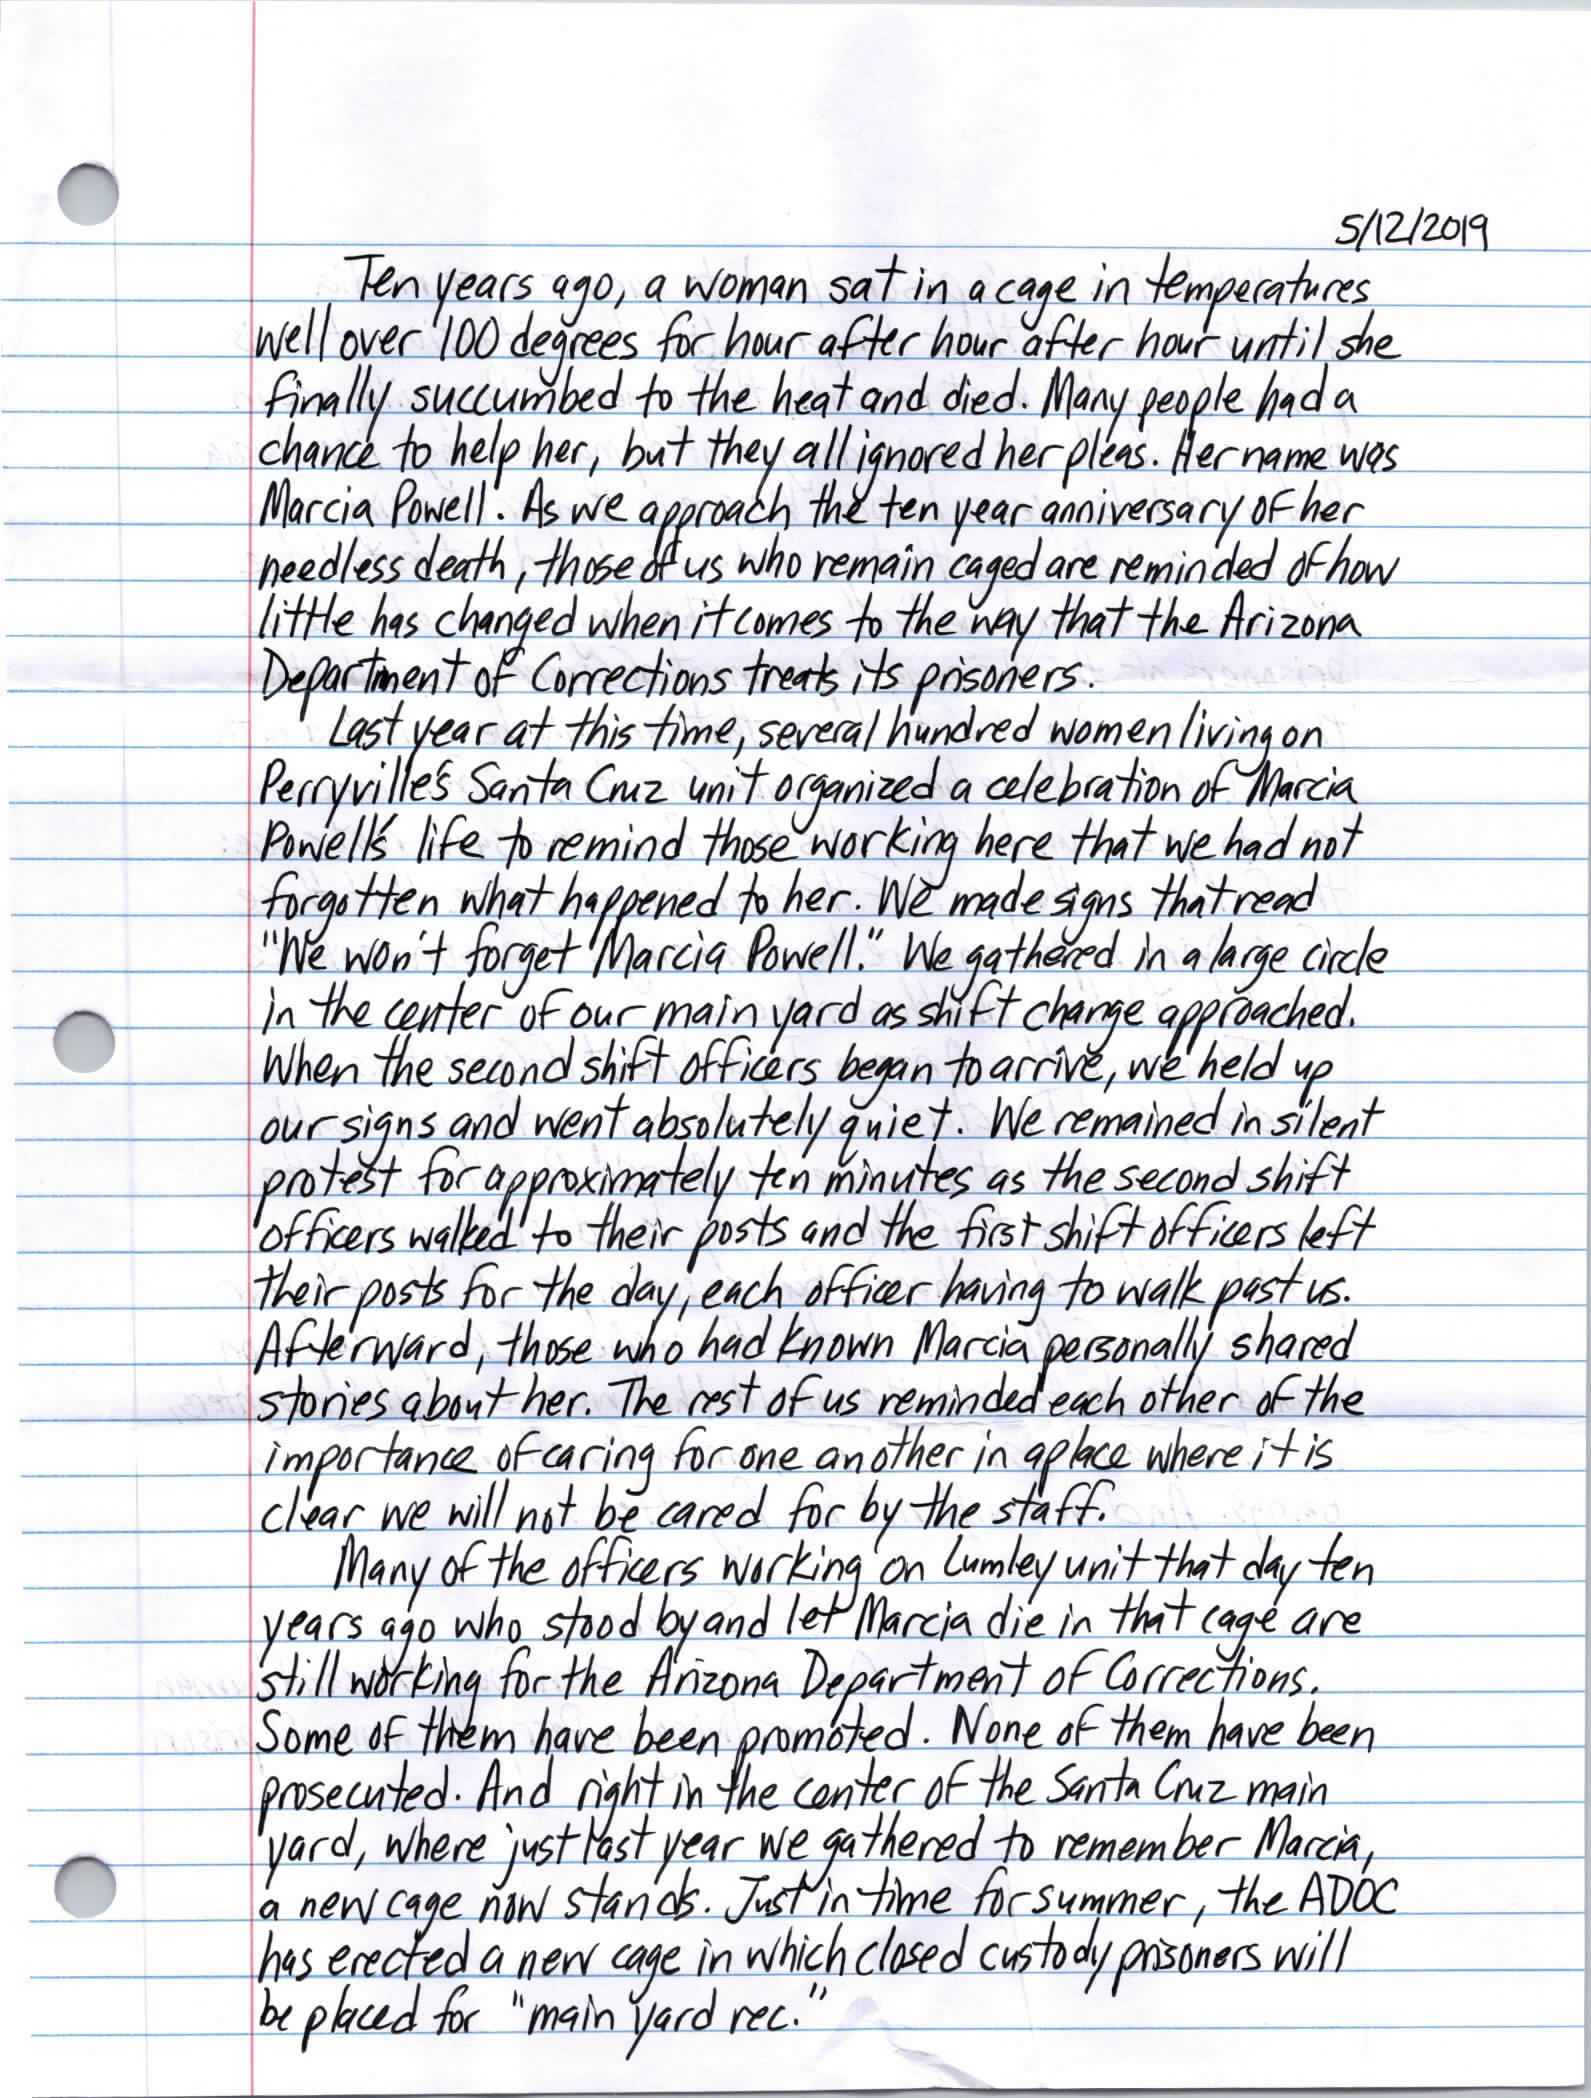 5/12/2019
Ten years ago, a woman sat in a cage in temperatures
well over 100 degrees for hour after hour after hour until she
finally succumbed to the heat and died. Many people had a
chance to help her, but they all ignored her pleas. Her name was
Marcia Powell. As we approach the ten year anniversary of her
needless death, those of us who remain caged are reminded of how
little has changed when it comes to the way that the Arizona
Department of Corrections treats its prisoners.
Last year at this time, several hundred women living on
Perryville's Santa Cruz unit organized a celebration of Marcia
Powell's life to remind those working here that we had not
forgotten what happened to her. We made signs that read
"We won't forget Marcia Powell." We gathered in a large circle
in the center of our main yard as shift change approached.
When the second shift officers began to arrive, we held up
our signs and went absolutely quiet. We remained in silent
protest for approximately ten minutes as the second shift
officers walked to their posts and the first shift officers left
their posts for the day, each officer having to walk past us.
Afterward, those who had known Marcia personally shared
stories about her. The rest of us reminded each other of the
importance of caring for one another in a place where it is
clear we will not be cared for by the staff.
Many of the officers working on Lumley unit that day ten
years ago who stood by and let Marcia die in that cage are
still working for the Arizona Department of Corrections.
Some of them have been promoted. None of them have been
prosecuted. And right in the center of the Santa Cruz main
yard, where just last year we gathered to remember Marcia,
a new cage now stands. Just in time for summer, the ADOC
has erected a new cage in which closed custody prisoners will
be placed for "main yard rec."